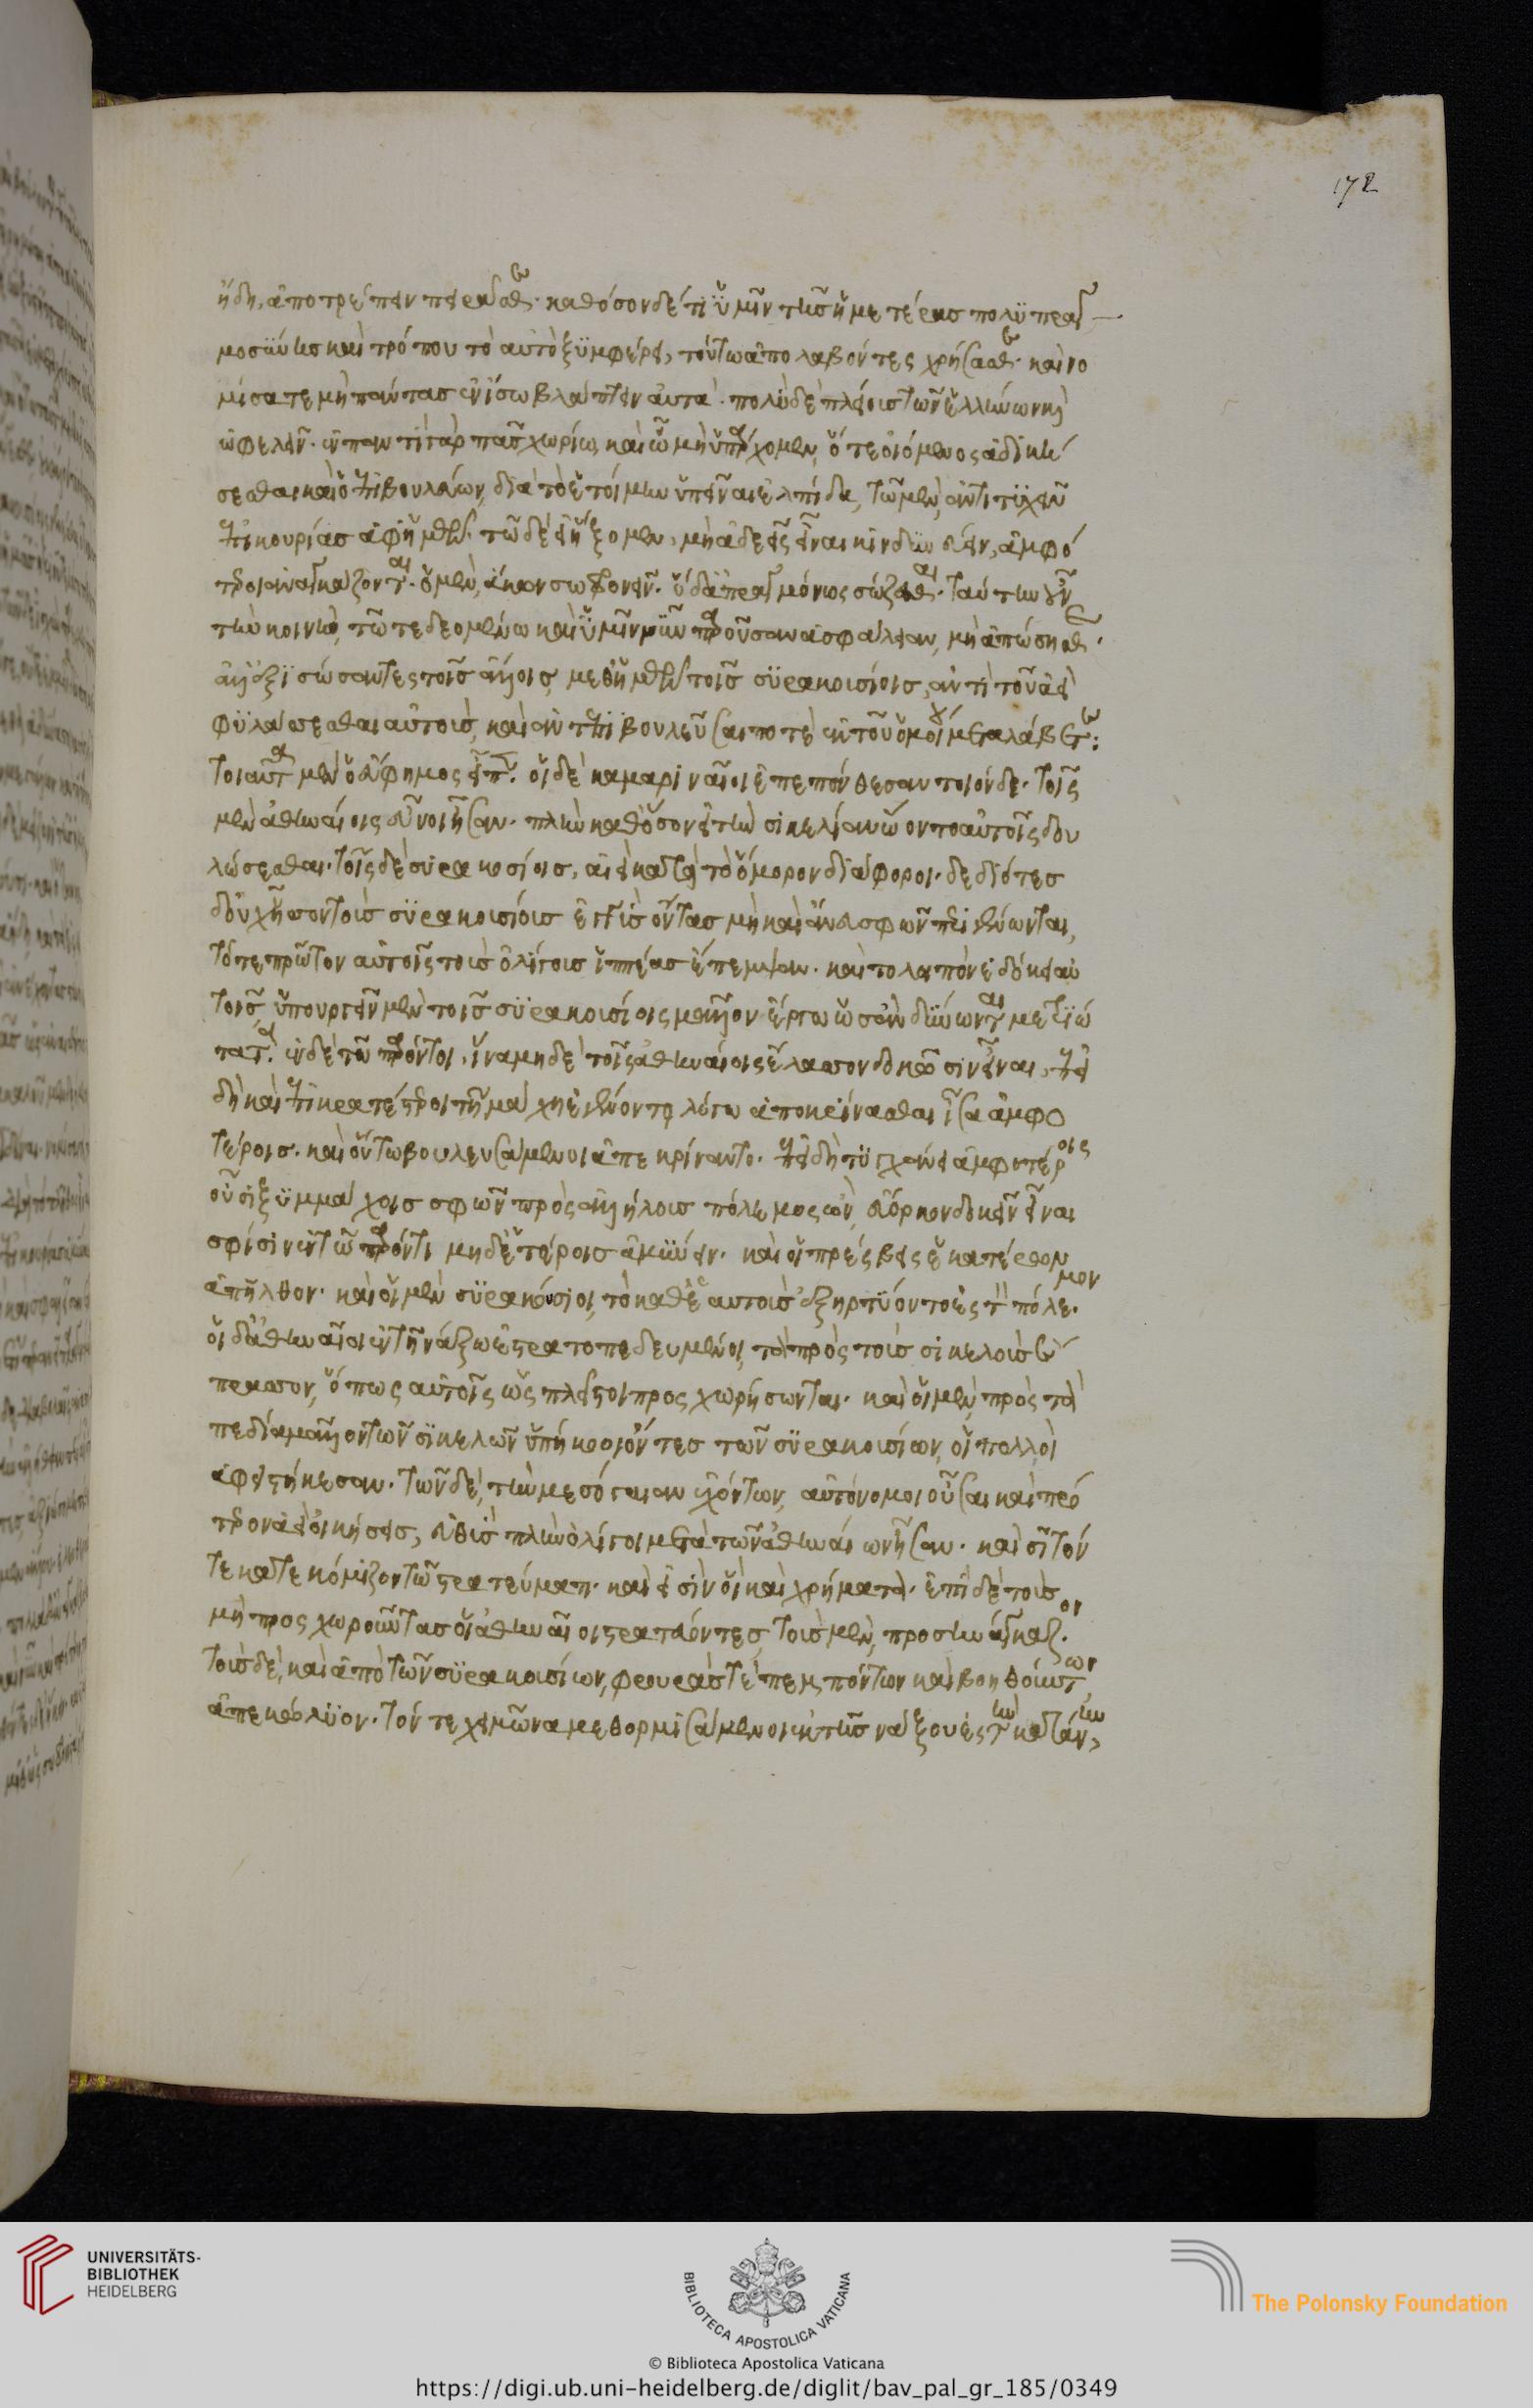 ἤδη, ἀποτρέπειν πειρᾶσθε· καθόσον δέ τι ὑμῖν τῆς ἡμετέρας πολυπραγ
μοσύνης καὶ τρόπου τὸ αὐτὸ ξυμφέρει, τούτω ἀπολαβόντες χρήσασθε· καὶ νο
μίσατε μὴ πάντας ἐν ἴσω βλάπτειν αὐτά· πολὺ δὲ πλείους τῶν ἑλλήνων καὶ
ὠφελεῖν· ἐν παντὶ γὰρ πᾶς χωρίω, καὶ ᾧ μὴ ὑπάρχομεν, ὅ τε οἰόμενος ἀδική
σεσθαι καὶ ὁ ἐπιβουλεύων, διὰ τὸ ἑτοίμην ὑπεῖναι ἐλπίδα, τῶ μὲν, ἀντιτυχεῖν
ἐπικουρίας ἀφ' ἡμῶν· τῶ δὲ εἰ ἥξομεν, μὴ ἀδεεῖς εἶναι κινδυνεύειν, ἀμφό
τεροι ἀναγκάζονται· ὁ μὲν, ἄκων σωφρονεῖν· ὁ δ' ἀπραγμόνως σώζεσθαι· ταύτην οὖν
τὴν κοινὴν, τῶ τε δεομένω καὶ ὑμῖν νῦν παροῦσαν ἀσφάλειαν, μὴ ἀπώσησθε·
ἀλλ' ἐξισώσαντες τοῖς ἄλλοις, μεθ' ἡμῶν τοῖς συρακουσίοις, ἀντὶ τοῦ ἀεὶ
φυλάσσεσθαι αὐτοὺς, καὶ ἀντεπιβουλεῦσαι ποτὲ ἐκ τοῦ ὁμοίου μεταλάβετε:
τοιαῦτα μὲν ὁ εὔφημος εἶπεν· οἱ δὲ καμαριναῖοι ἐπεπόνθεσαν τοιόνδε· τοῖς
μὲν ἀθηναίοις εὖνοι ἦσαν· πλὴν καθόσον εἰ τὴν σικελίαν ᾤοντο αὐτοὺς δου
λώσεσθαι· τοῖς δὲ συρακοσίοις, ἀεὶ κατὰ τὸ ὅμορον διάφοροι· δεδιότες
δ' οὐχ ἧσσον τοὺς συρακουσίους ἐγγὺς ὄντας μὴ καὶ ἄνευ σφῶν περιγένωνται,
τό τε πρῶτον αὐτοῖς τοὺς ὀλίγους ἱππέας ἔπεμψαν· καὶ τὸ λοιπὸν ἐδόκει αὐ
τοῖς, ὑπουργεῖν μὲν τοῖς συρακουσίοις μᾶλλον ἔργω ὡς ἂν δύνωνται μετριώ
τατα· ἐν δὲ τῶ παρόντι, ἵνα μηδὲ τοῖς ἀθηναίοις ἔλασσον δοκῶσιν εἶναι, ἐπει
δὴ καὶ ἐπικρατέστεροι τῆ μάχη ἐγένοντο, λόγω ἀποκρίνασθαι ἴσα ἀμφο
τέροις· καὶ οὕτω βουλευσάμενοι ἀπεκρίναντο· ἐπειδὴ τυγχάνει ἀμφοτέροις
οὖσι ξυμμάχοις σφῶν πρὸς ἀλλήλους πόλεμος ὢν, εὔορκον δοκεῖν εἶναι
σφίσιν ἐν τῶ παρόντι μηδετέροις ἀμύνειν· καὶ οἱ πρέσβεις ἑκατέρων
ἀπῆλθον· καὶ οἱ μὲν συρακόσιοι, τὸ καθ' ἑαυτοὺς ἐξηρτύοντο ἐς τὸν πόλεμον·
οἱ δ' ἀθηναῖοι ἐν τῆ νάξω ἐστρατοπεδευμένοι, τὰ πρὸς τοὺς σικελοὺς ἔ
πρασσον, ὅπως αὐτοῖς ὡς πλεῖστοι προσχωρήσωνται· καὶ οἱ μὲν πρὸς τὰ
πεδία μᾶλλον τῶν σικελῶν ὑπήκοοι ὄντες τῶν συρακουσίων, οἱ πολλοὶ
ἀφεστήκεσαν· τῶν δὲ, τὴν μεσόγαιαν ἐχόντων, αὐτόνομοι οὖσαι καὶ πρό
τερον ἀεὶ οἰκήσεις, εὐθὺς πλὴν ὀλίγοι μετὰ τῶν ἀθηναίων ἦσαν· καὶ σῖτόν
τε κατεκόμιζον τῶ στρατεύματι· καὶ εἰσὶν οἱ καὶ χρήματα· ἐπὶ δὲ τοὺς
μὴ προσχωροῦντας οἱ ἀθηναῖοι στρατεύοντες, τοὺς μὲν, προσηνάγκαζον·
τοὺς δὲ, καὶ ἀπὸ τῶν συρακουσίων, φρουράς τε πεμπόντων καὶ βοηθούντων
ἀπεκώλυον· τόν τε χειμῶνα μεθορμισάμενοι ἐκ τῆς νάξου ἐς τὴν κατάνην,
172
UNIVERSITÄTS-
BIBLIOTHEK
HEIDELBERG
BIBLIOTECA APOSTOLICA VATICANA
The Polonsky Foundation
© Biblioteca Apostolica Vaticana
https://digi.ub.uni-heidelberg.de/diglit/bav_pal_gr_185/0349